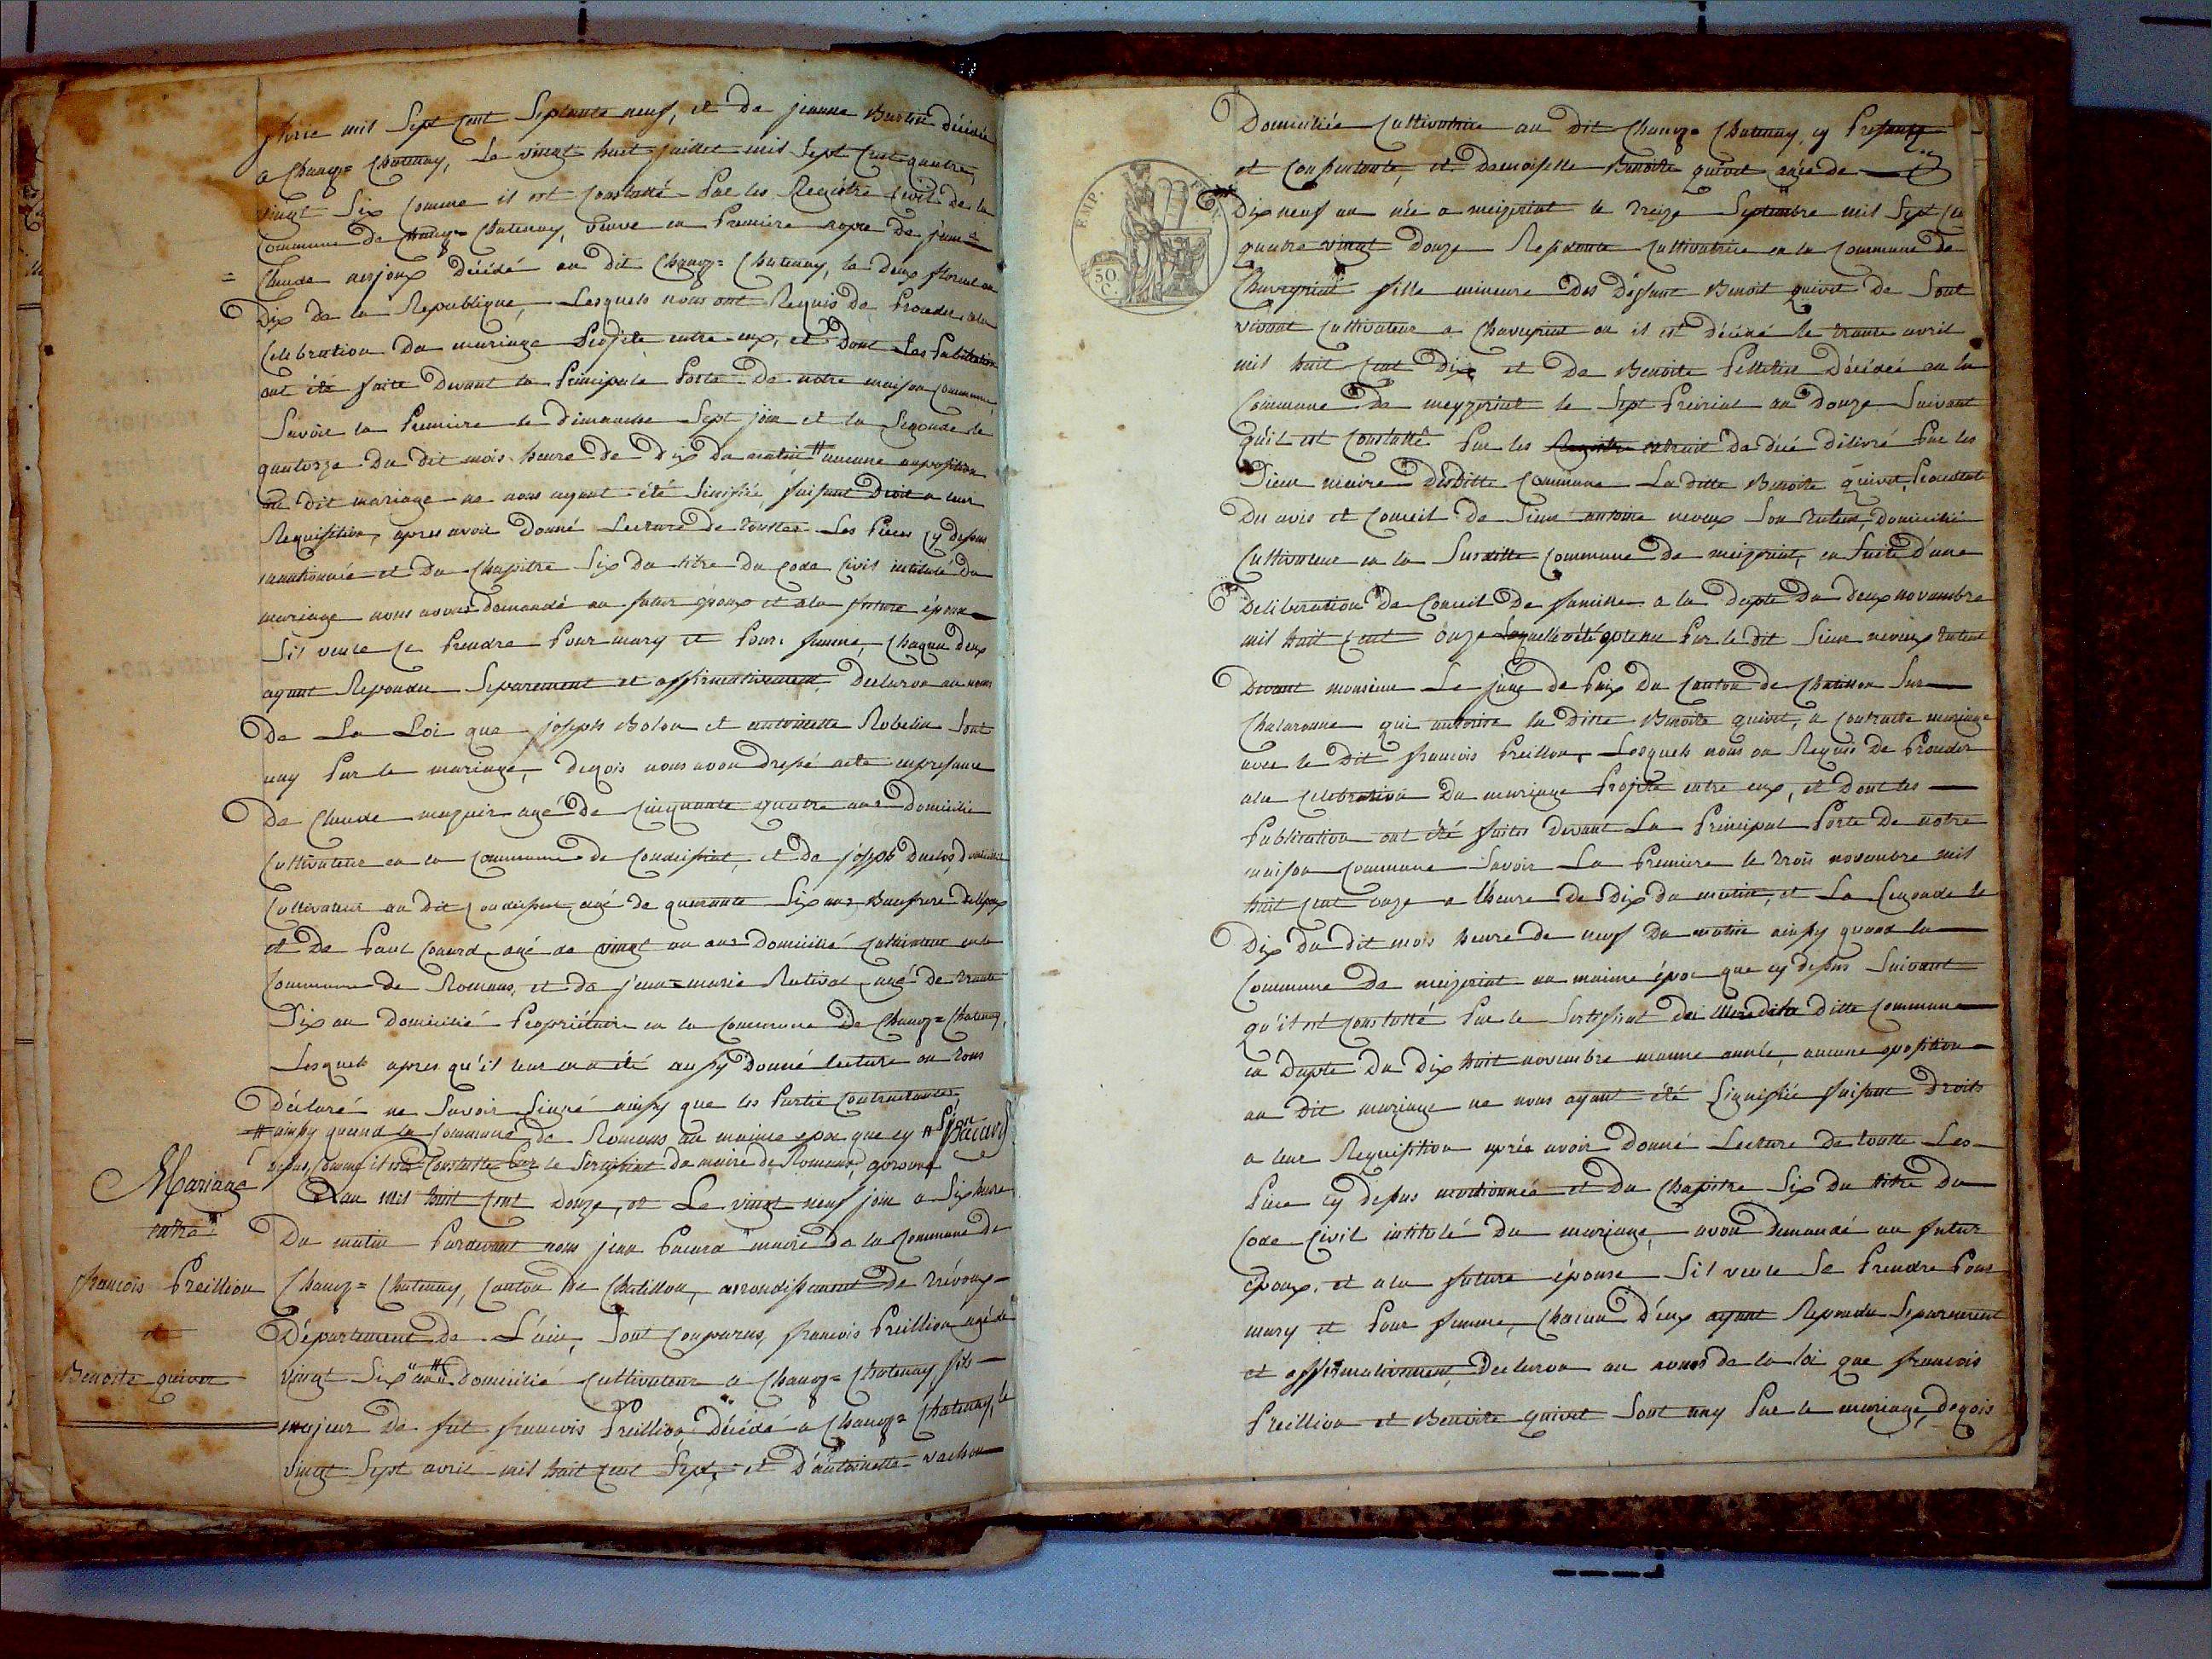 fevrie mil Sept Cent Septante neuf, et De jeanne Bertin décédée
a Chanoz= Chatenay, Le vingt huit juillet mil Sept Cent quatre,
vingt Six Comme il est Constatté Par les Registre Civil de la
Commune de Chanoz= Chatenay, veuve en Premiere nopse De jean=
= Claude nerjoux Décédé au dit Chanoz= Chatenay, le deux floreal an
Dix De la Republique, Lesquels nous ont Requis De Proceder ala
Celebration Du mariage Projete entre eux, et Dont Les Publication
ont été faite Devant la Principale Porte De notre maison Commune,
Savoir la Premiere le dimanche Sept juin et la Segonde le
quatorze Du dit mois heure de Dix Du matin # aucune opposition
au dit mariage ne nous ayant été Sinifié, faisant Droit a leur
Requisition, apres avoir Donné Lecture De touttes Les Pieces Cy dessus
mantionnée et Du Chapitre Six Du titre Du Code Civil intitulé Du
mariage nous avons demandé au futur époux et ala future épouse
S'il veule Se Prendre Pour mary et Pour femme, Chaqun deux
ayant Repondu Separement et affirmativement, Declaron au nom
De La Loi que joseph Bolon et antoinette Robelin Sont
uny Par le mariage, Deqois nous avon dressé acte en presance
De Claude moguir agé De Cinquante quatre ans Domicilié
Cultivateur en la Commune de Condeissiat, et De joseph Duclos, Domicilié
Cultivateur au dit Condeissiat agé de quarante Six ans Beaufrere De l'époux
et De Paul Coward agé de vingt un ans Domicilié Cultivateur en la
Commune de Romans, et De jean=marie Rativat agé De trante
Six an Domicilié Propriétaire en la Commune De Chanoz= Chatenay,
Lesquels apres qu'il leur en a été aussy Donné lecture on tous
Déclaré ne Savoir Signé ainsy que les Partie Contractantes
# ainsy quand la Commune de Romans au maime epoc que cy #
dessus, Comme il est Constatté Par le Sertificat du maire de Romans, aprouvé
Pacard
Mariage
entre
françois Preillion
et
Benoite quivet
L'an mil huit Cent Douze, et Le vingt neuf juin a Six heure
Du matin Pardevant nous jean Pacard maire De la Commune de
Chanoz= Chatenay, Canton De Chatillon, arrondissement De Trévoux
Département De L'ain, Sont Comparus, françois Preillion agé de
vingt Six ans domicilié Cultivateur a Chanoz= Chatenay fils
majeur De fût françois Preillion Décédé a Chanoz= Chatenay, le
vingt Sept avril mil huit Cent Sept, et D'antoinette vachon
Domiciliée Cultivatrice au Dit Chanoz= Chatenay, cy Presante
et Consentante, et Demoiselle Benoite quivet agée de
Dix neuf an née a meizeriat le Treize Septembre mil Sept Ce
quatre vingt Douze Residante Cultivatrice en la Commune De
Chaveyriat fille mineure Des Défunt Benoit quivet De Sont
vivant Cultivateur a Chaveyriat ou il est décédé le trante avril
mil huit Cent Dix et De Benoite Pelletier Décédée en la
Commune De meyzeriat le Sept Preirial an Douze Suivant
qu'il est Constatté Par les extrait De décé délivré Par les
Sieur maire Desditte Commune La ditte Benoite quivet, Procedant
Du avis et Conseil De Sieur antoine neveux Son tuteur, Domicilié
Cultivateur en la Susditte Commune De meizeriat, en Suite D'une
Deliberation De Conseil De famille a la Dapte Du deux novembre
mil huit Cent onze Laquelle a été optenu Par le dit Sieur neveux tuteur
Devant monsieur Le juge de Paix Du Canton De Chatillon Sur
Chalaronne qui autorise la Ditte Benoite quivet, a Contracte mariage
avec le Dit françois Preillion, Lesquels nous on Requis De Proceder
ala Celebration Du mariage Projete entre eux, et Dont les
Publication ont été faites Devant La Principal Porte De notre
maison Commune Savoir La Premiere le trois novembre mil
huit Cent onze a l'heure De Dix du matin, et La Cegonde le
Dix Du dit mois heure de neuf Du matin ainsy quand la
Commune De meizeriat au maime époc que cy dessus Suivant
qu'il est Constatté Par le Sertificat Du ditte Commune
en Dapte Du Dix huit novembre maime année, aucune oposition
au Dit mariage ne nous ayant été Signifiée faisant Droits
a leur Requisition aprés avoir Donné Lecture De toutte Les
Piece Cy dessus mentionnée et Du Chapitre Six Du titre Du
Code Civil intitulé Du mariage, avon Demandé au futur
époux, et ala future épouse S'il veule Se Prendre Pour
mary et Pour femme, Chacun D'eux ayant Repondu Separement
et affirmativement, Declaron au nom de la loi que françois
Preillion et Benoite quivet Sont uny Par le mariage, Deqois
EMP.
50
C.